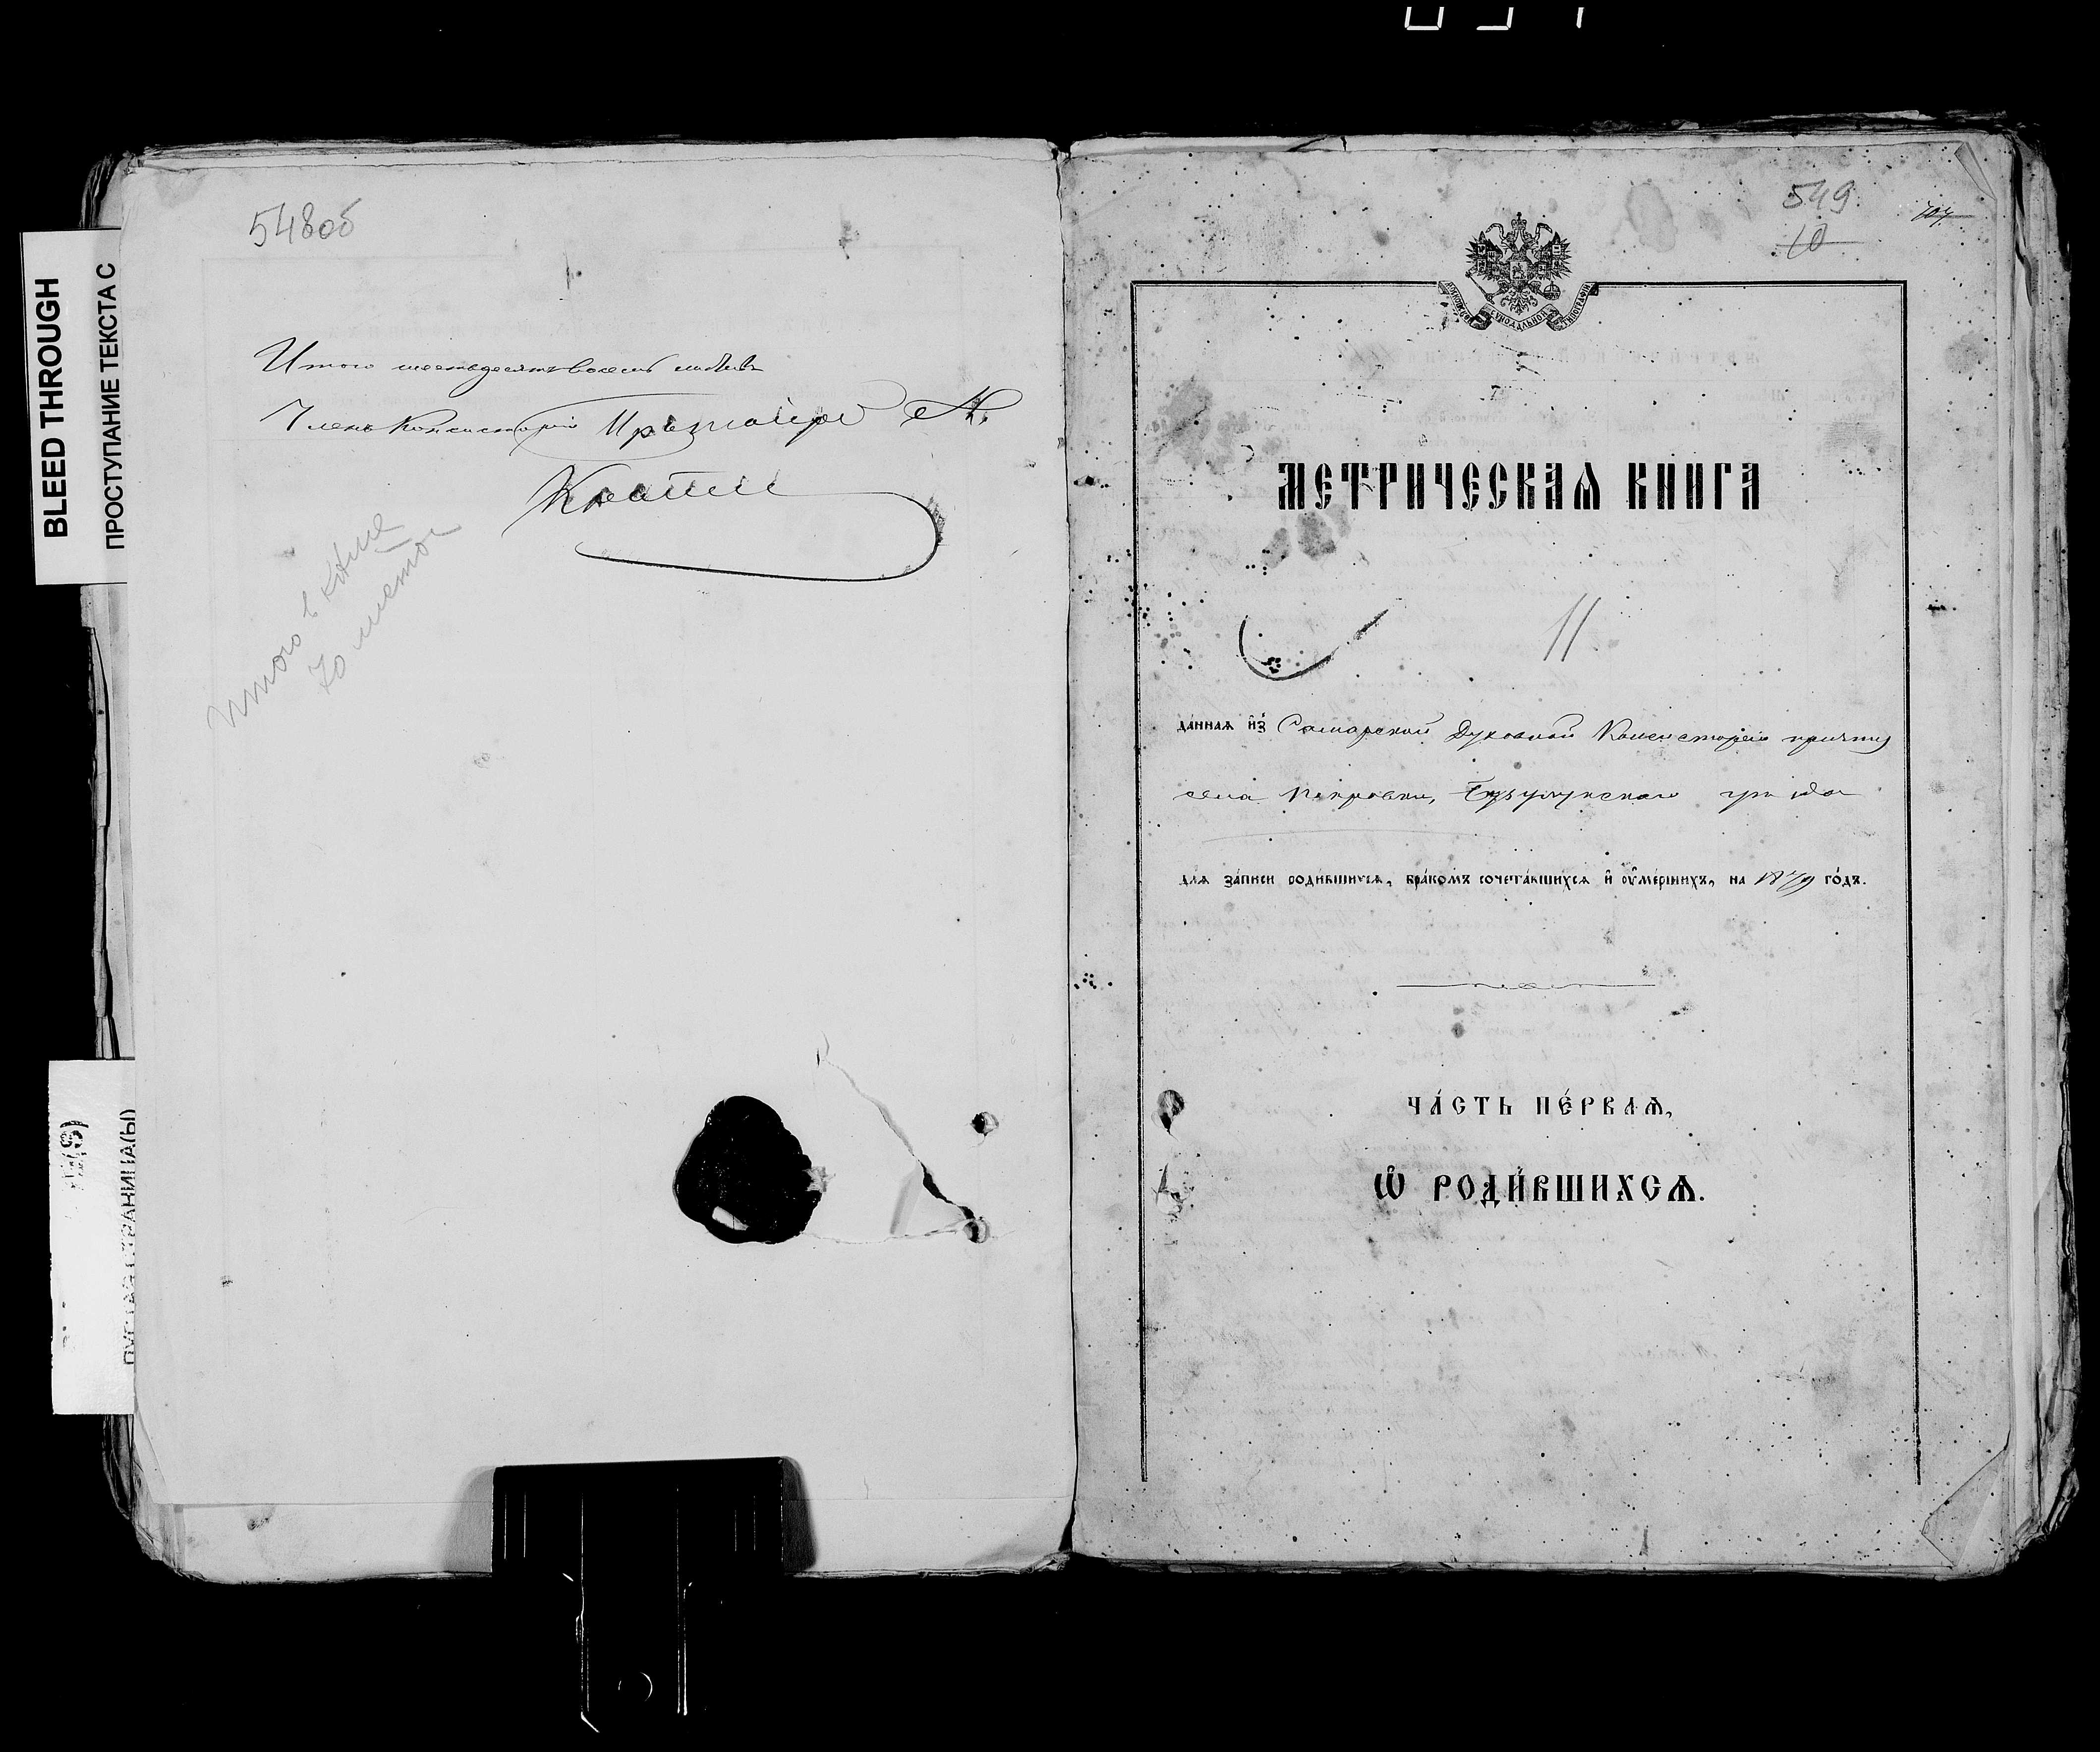 BLEED THROUGH
ПРОСТУПАНИЕ ТЕКСТА С
548об
Итого шестьдесятъ восемь листовъ
Членъ Консисторіи Протоіерей
Итого в книге
70 листов
ПУСТАЯ СТРАНИЦА(Ы)
549
10
МЕТРИЧЕСКАѦ КНИГА
11
да́ннаѧ и҆з̾ Самарской Духовной Консисторіи причту
села Покровки, Бузулукскаго уѣзда
длѧ за́писи роди́вшихсѧ, бра́комъ сочета́вшихсѧ и҆ ᲂу҆ме́ршихъ, на 1879 го́дъ.
ЧА́СТЬ ПЕ́РВАѦ,
Ѽ РОДИ́ВШИХСѦ.